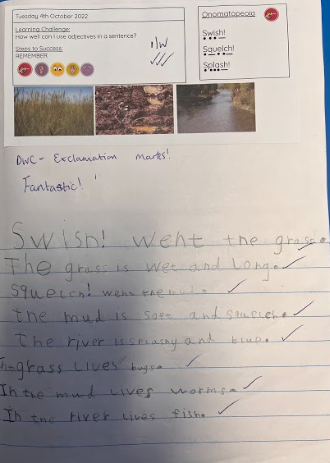 Tuesday 4th October 2022
Learning Challenge:
How well can I use adjectives in a sentence?
Steps to Success
REMEMBER
I/W
Onomatopoeia
Swish!
Squelch!
Splash!
DWC - Exclamation marks!
Fantastic!
Swish! went the grass.
The grass is wet and long.
Squelch! went the mud.
the mud is soft and
The river is splashy and blue.
In grass lives bugs.
In the mud lives worms.
In the river lives fish.